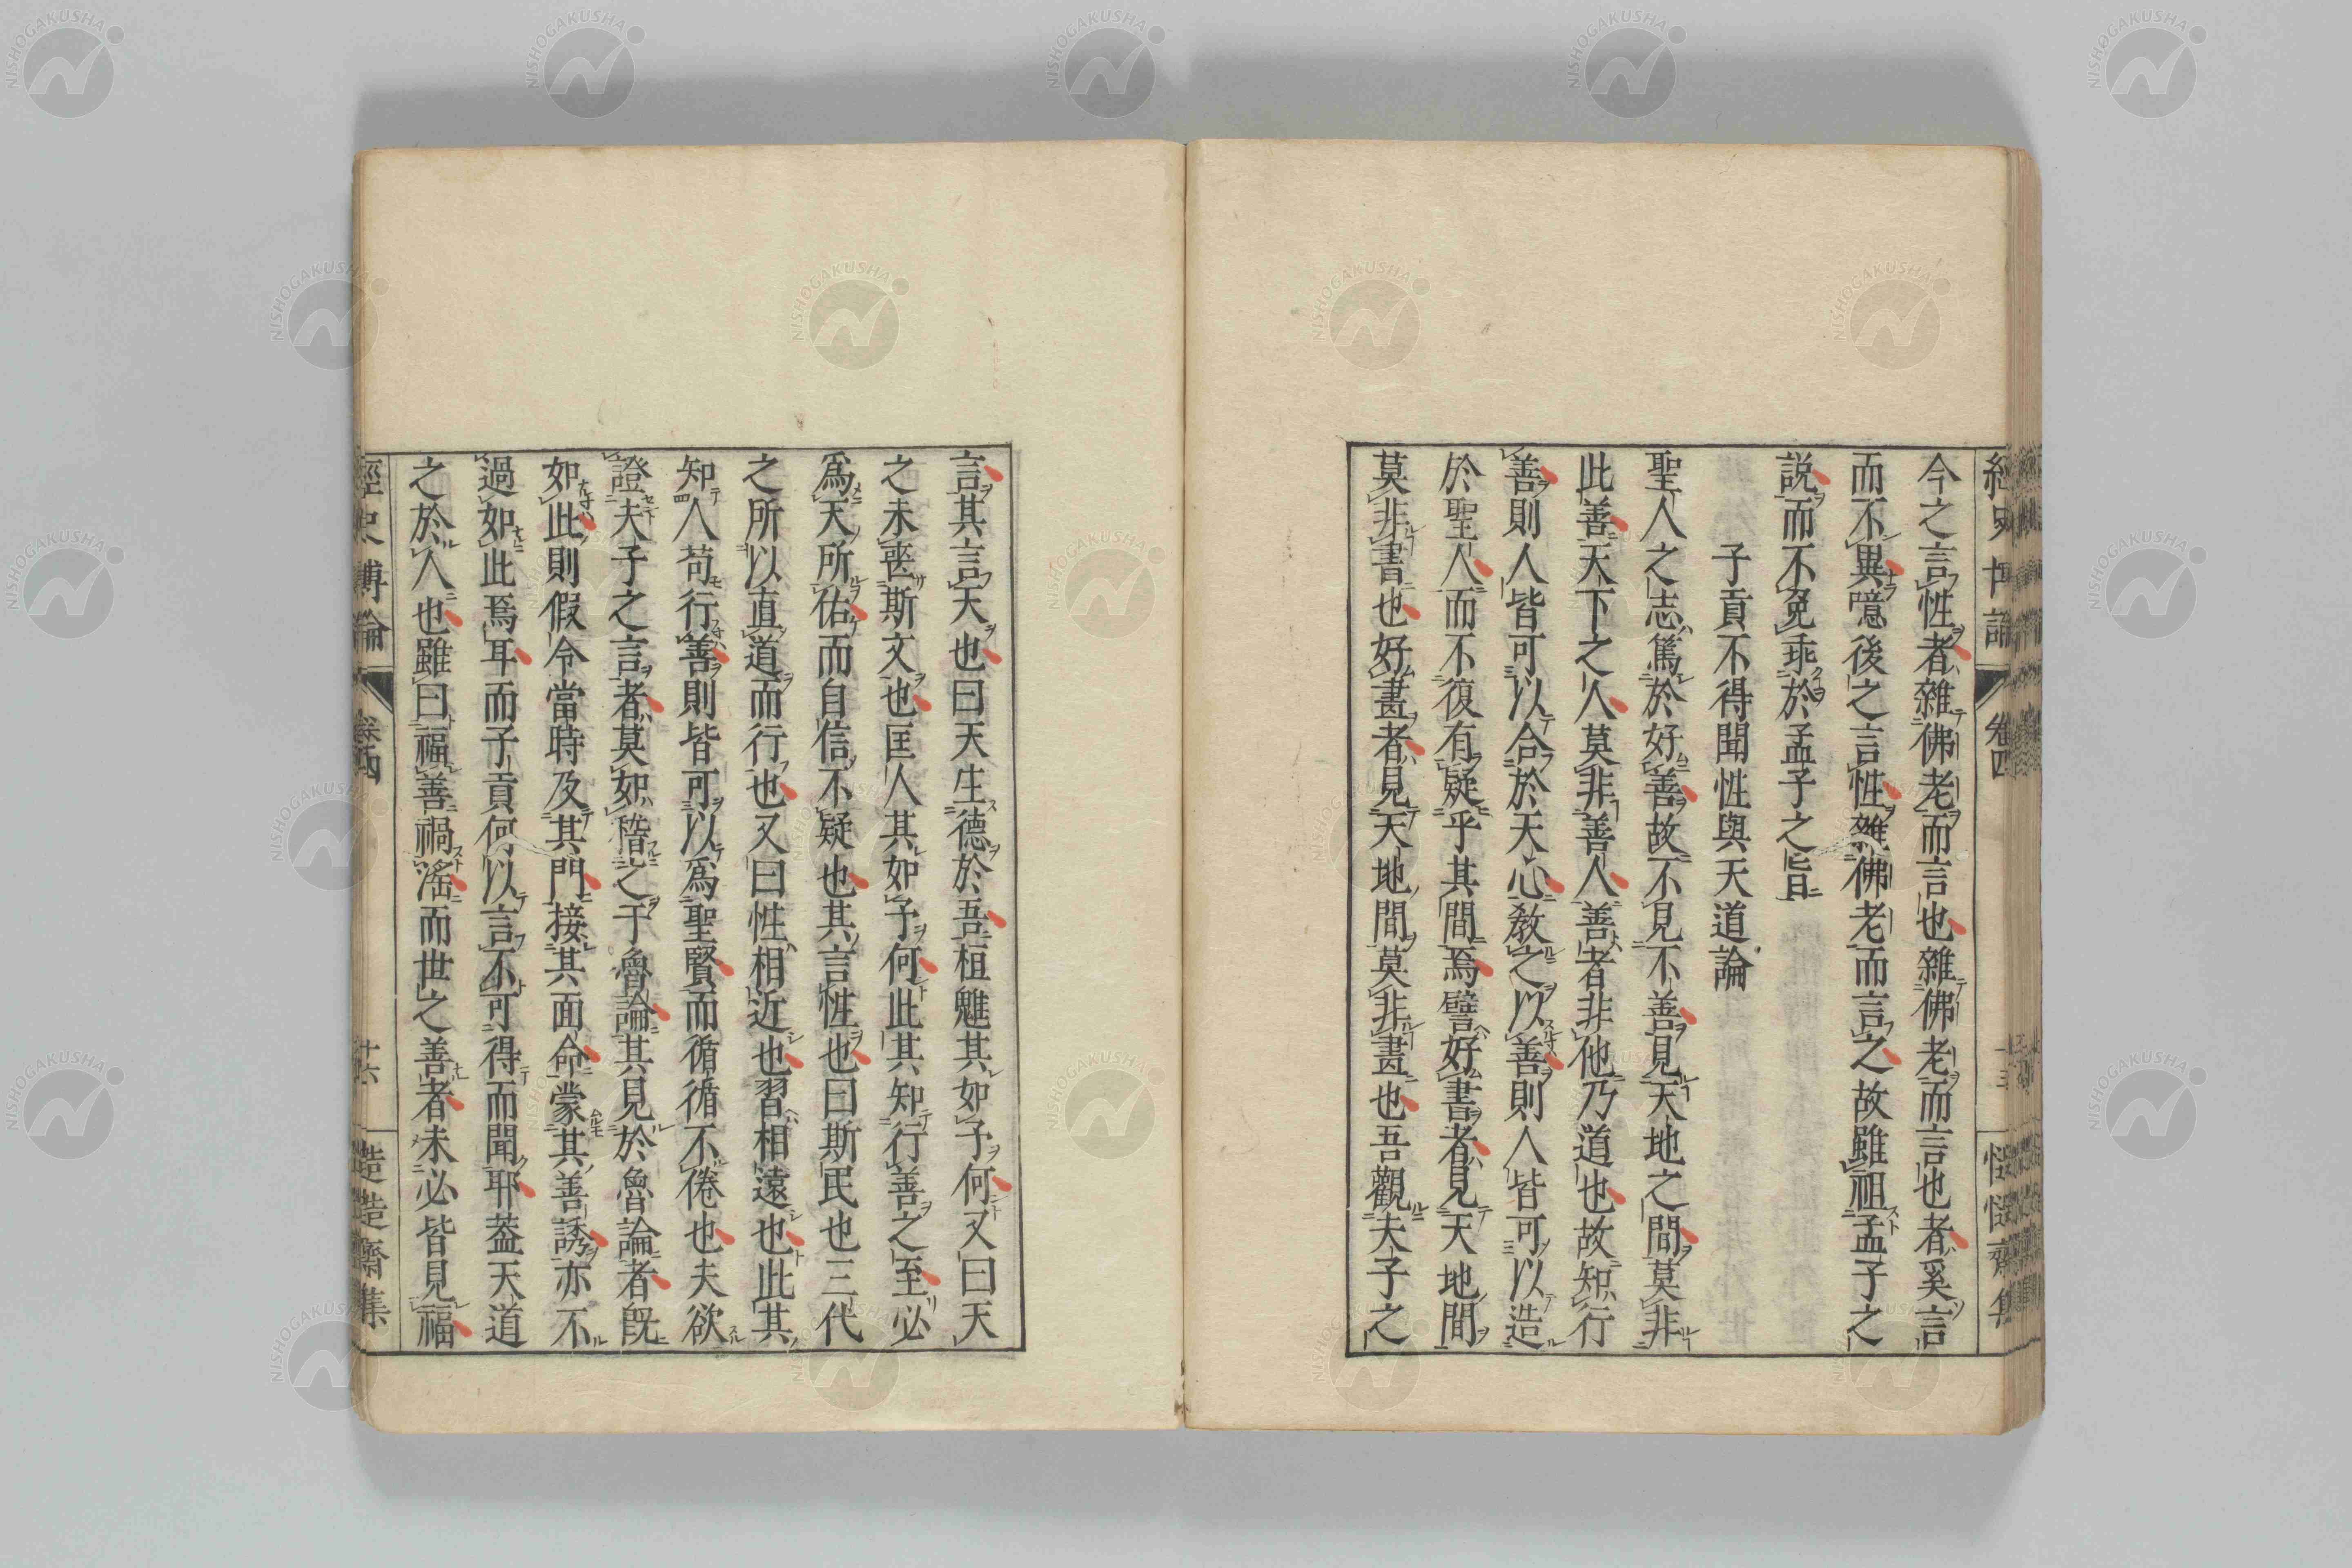 今之言性者雜佛老而言也雜佛老而言也者奚言
而不異噫後之言性雜佛老而言之故雖祖孟子之
説而不免乖於孟子之旨
子貢不得聞性與天道論
聖人之志篤於好善故不見不善見天地之間莫非
此善天下之人莫非善人善者非他乃道也故知行
善則人皆可以合於天心教之以善則人皆可以造
於聖人而不復有疑乎其間焉譬好書者見天地間
莫非書也好畫者見天地間莫非畫也吾觀夫子之
言其言天也曰天生德於吾桓魋其如予何又曰天
之未喪斯文也匡人其如予何此其知行善之至必
為天所佑而自信不疑也其言性也曰斯民也三代
之所以直道而行也又曰性相近也習相遠也此其
知人苟行善則皆可以為聖賢而循循不倦也夫欲
證夫子之言者莫如稽之于魯論其見於魯論者既
如此則假令當時及其門接其面命蒙其善誘亦不
過如此焉耳而子貢何以言不可得而聞耶蓋天道
之於人也雖曰福善禍淫而世之善者未必皆見福
經史博論
卷四
十六
慥慥齋集
NISHOGAKUSHA